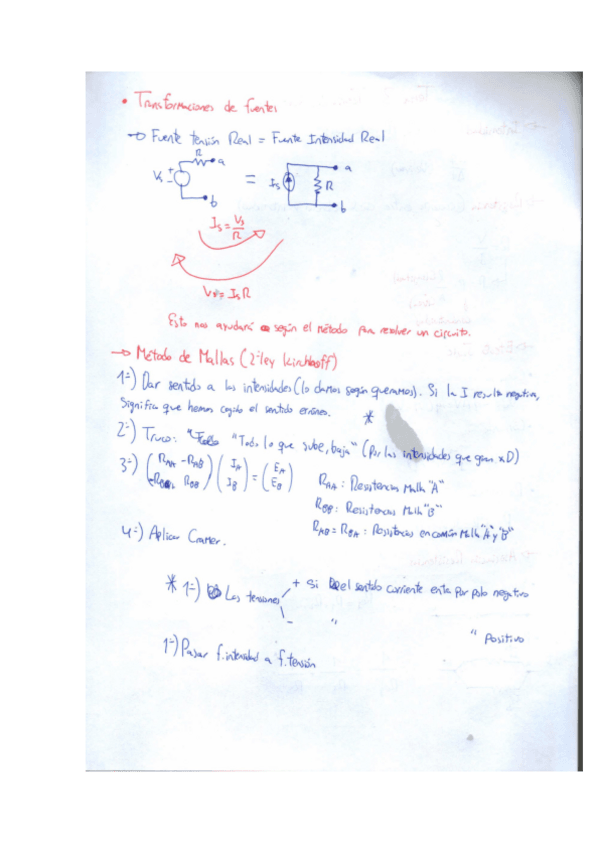 • Transformaciones de fuentes
→ Fuente tensión Real = Fuente Intensidad Real
R a Vs + - b = Is R a b
Is = Vs/R
Vs = Is R
Esto nos ayudará según el método para resolver un circuito.
→ Método de Mallas (2ª ley Kirchhoff)
1º) Dar sentido a las intensidades (lo damos según queramos). Si la I resulta negativa,
significa que hemos cogido el sentido erróneo. *
2º) Truco: "Todo lo que sube, baja" (Por las intensidades que giran x D)
3º) (RAA -RAB -RBA RBB) (IA IB) = (EA EB)
RAA: Resistencias Malla "A"
RBB: Resistencias Malla "B"
RAB = RBA: Resistencias en común Malla "A" y "B"
4º) Aplicar Cramer.
* 1º) Las tensiones + Si el sentido corriente entra por polo negativo
- " " Positivo
1º) Pasar f. intensidad a f. tensión